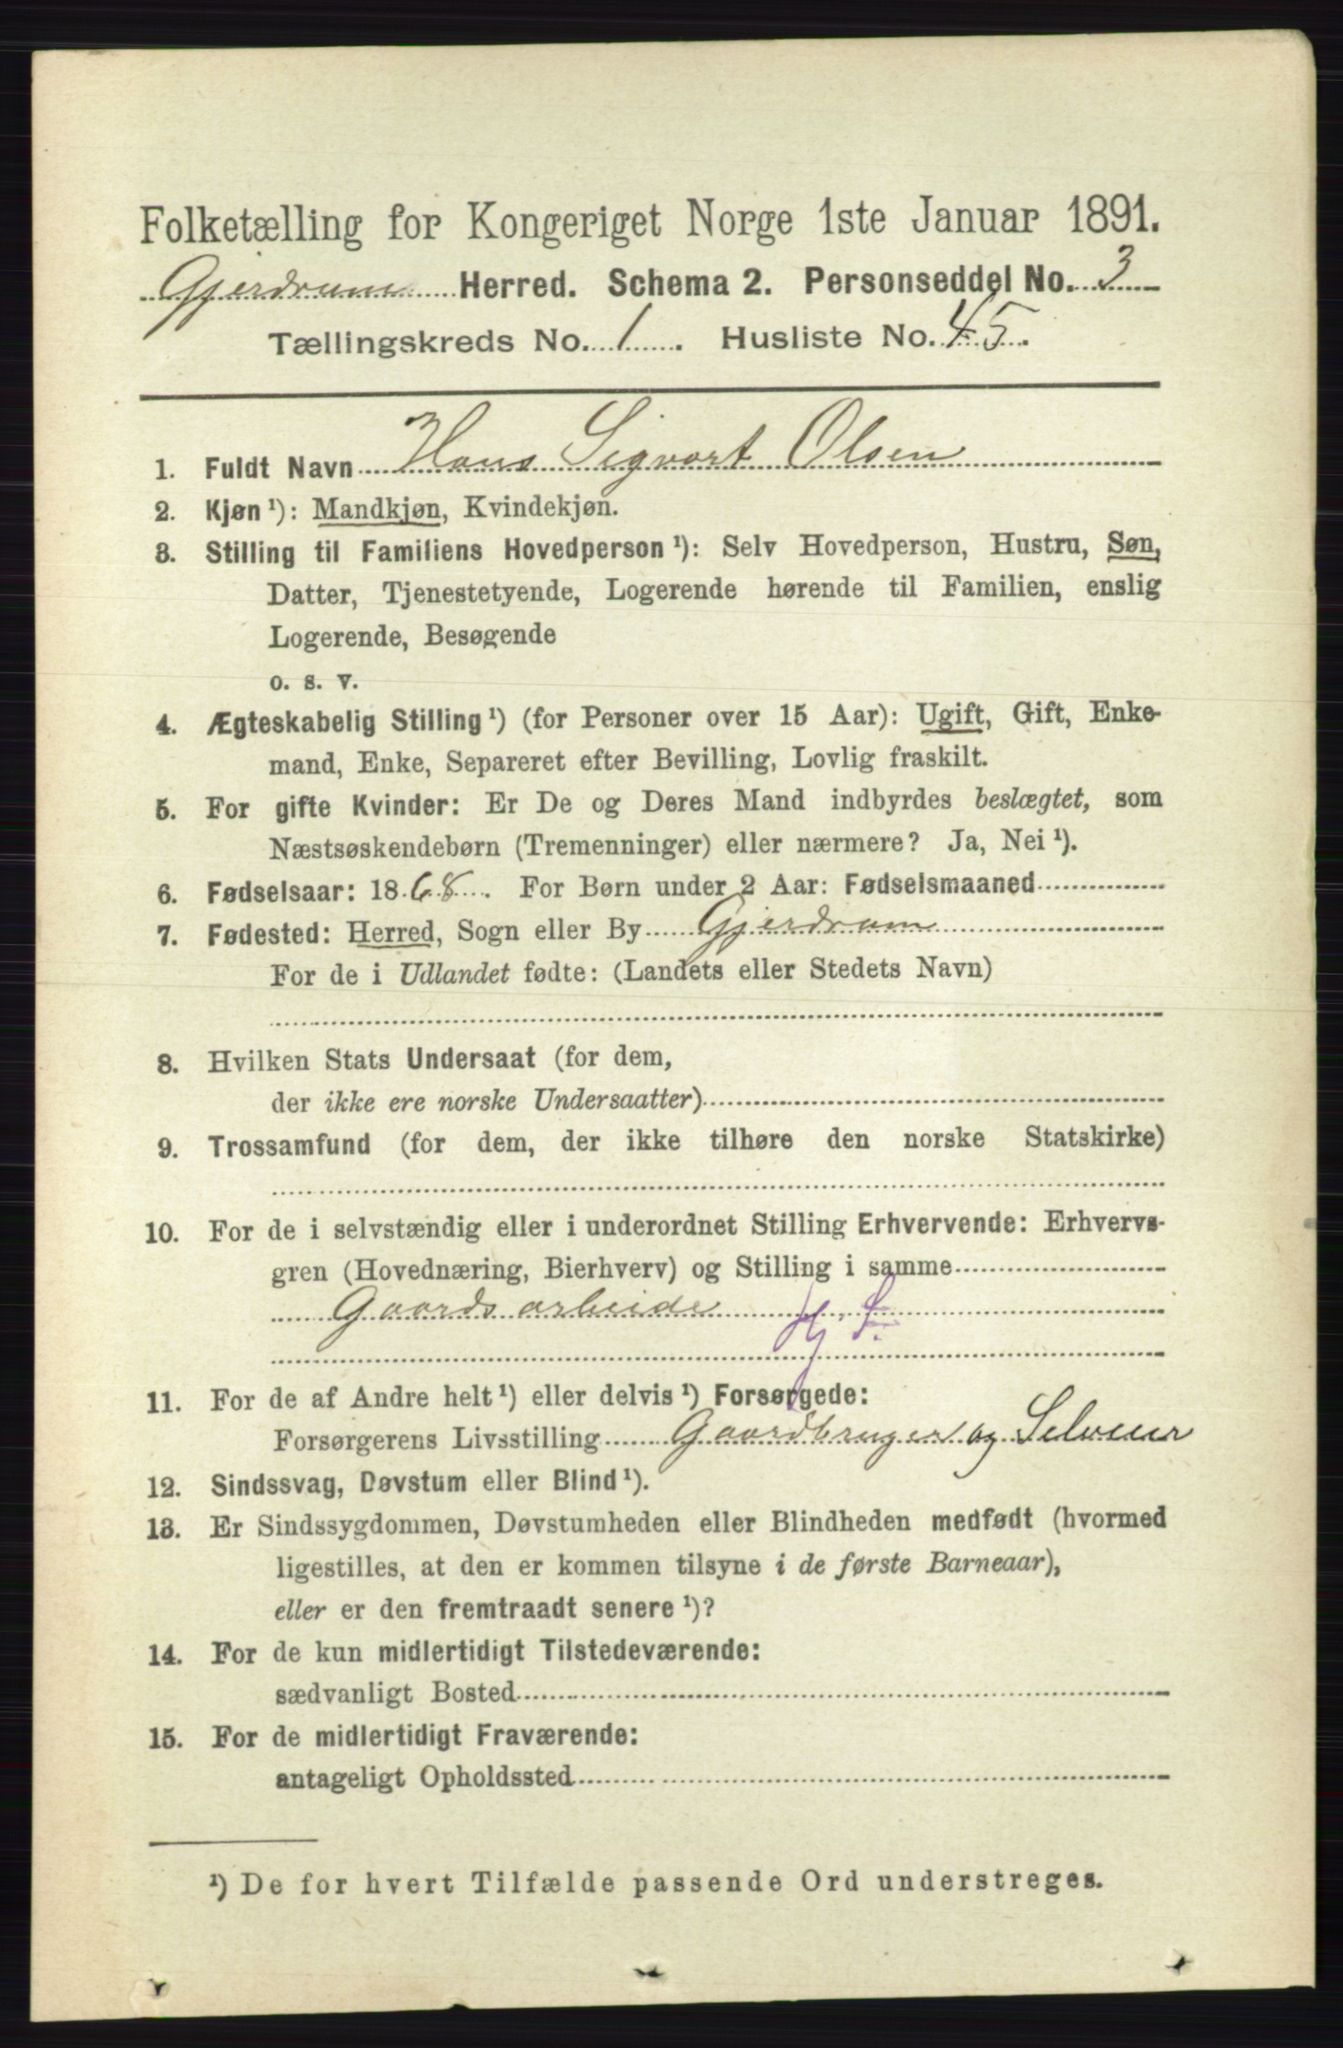 Folketælling for Kongeriget Norge 1ste Januar 1891.
Gjerdrum Herred. Schema 2. Personseddel No. 3
Tællingskreds No. 1. Husliste No. 45.
1. Fuldt Navn Hans Sigvart Olsen
2. Kjøn ¹): Mandkjøn, Kvindekjøn.
3. Stilling til Familiens Hovedperson ¹): Selv Hovedperson, Hustru, Søn,
Datter, Tjenestetyende, Logerende hørende til Familien, enslig
Logerende, Besøgende
o. s. v.
4. Ægteskabelig Stilling ¹) (for Personer over 15 Aar): Ugift, Gift, Enke-
mand, Enke, Separeret efter Bevilling, Lovlig fraskilt.
5. For gifte Kvinder: Er De og Deres Mand indbyrdes beslægtet, som
Næstsøskendebørn (Tremenninger) eller nærmere? Ja, Nei ¹).
6. Fødselsaar: 1868. For Børn under 2 Aar: Fødselsmaaned
7. Fødested: Herred, Sogn eller By Gjerdrum
For de i Udlandet fødte: (Landets eller Stedets Navn)
8. Hvilken Stats Undersaat (for dem,
der ikke ere norske Undersaatter)
9. Trossamfund (for dem, der ikke tilhøre den norske Statskirke)
10. For de i selvstændig eller i underordnet Stilling Erhvervende: Erhvervs-
gren (Hovednæring, Bierhverv) og Stilling i samme
Gaardsarbeide
11. For de af Andre helt ¹) eller delvis ¹) Forsørgede:
Forsørgerens Livsstilling Gaardbruger og Selveier
12. Sindssvag, Døvstum eller Blind ¹).
13. Er Sindssygdommen, Døvstumheden eller Blindheden medfødt (hvormed
ligestilles, at den er kommen tilsyne i de første Barneaar),
eller er den fremtraadt senere ¹)?
14. For de kun midlertidigt Tilstedeværende:
sædvanligt Bosted
15. For de midlertidigt Fraværende:
antageligt Opholdssted
¹) De for hvert Tilfælde passende Ord understreges.